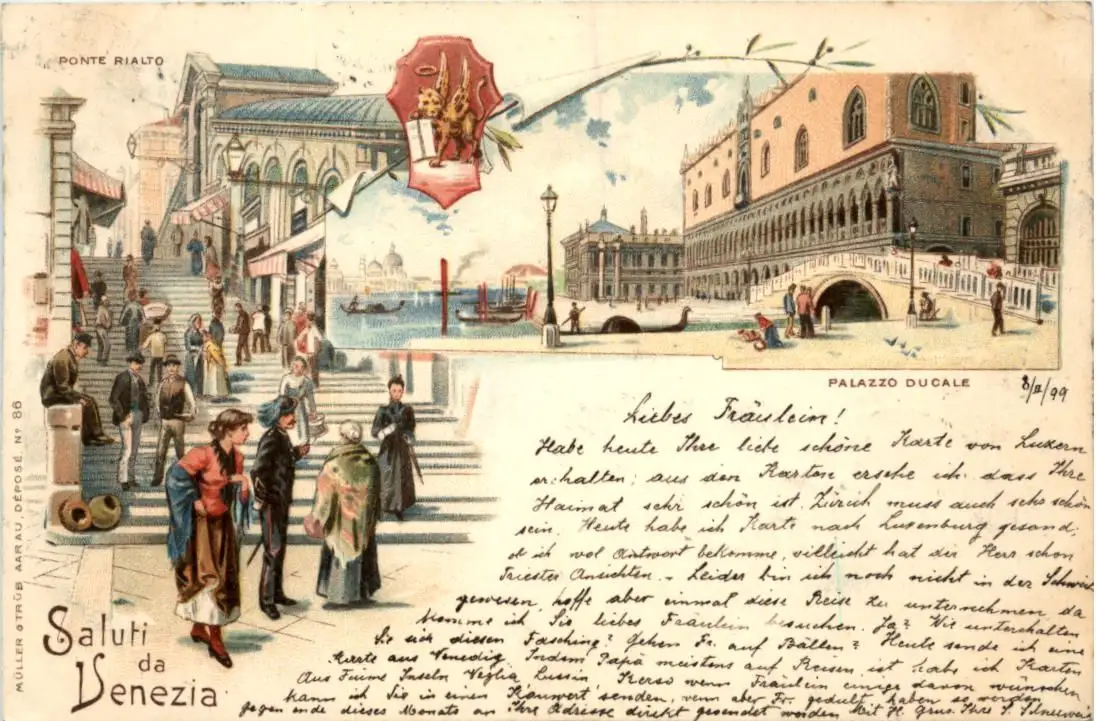 PONTE RIALTO
PALAZZO DUCALE
8/II/99
Liebes Fräulein!
Habe heute Ihre liebe schöne Karte von Luzern
erhalten; aus den Karten ersehe ich dass Ihre
Haimat sehr schön ist. Zürich muss auch sehr schön
sein. Heute habe ich Karte nach Luxenburg gesand,
ob ich wol Antwort bekomme, villeicht hat der Herr schon
Triester Ansichten. - Leider bin ich noch nicht in der Schweiz
gewesen, hoffe aber einmal diese Reise zu unternehmen da
komme ich Sie liebes Fräulein besuchen. Ja? Wie unterhalten
Sie sich diesen Fasching? Gehen Fr. auf Bällen? Heute sende ich eine
Karte aus Venedig. Indem Papa meistens auf Reisen ist hab ich Karten
Aus Fiume Inseln Veglia, Lussin, Kerso wenn Fräulein einige davon wünschen
kann ich Sie in einen Kauwert senden, wenn aber Fr. geduld haben so werden
gegen ende dieses Monats an Ihre Adresse direkt gesendet werden Mit H. Grus Ihre
Saluti
da
Venezia
MÜLLER & TRÜB AARAU. DÉPOSÉ. No 86